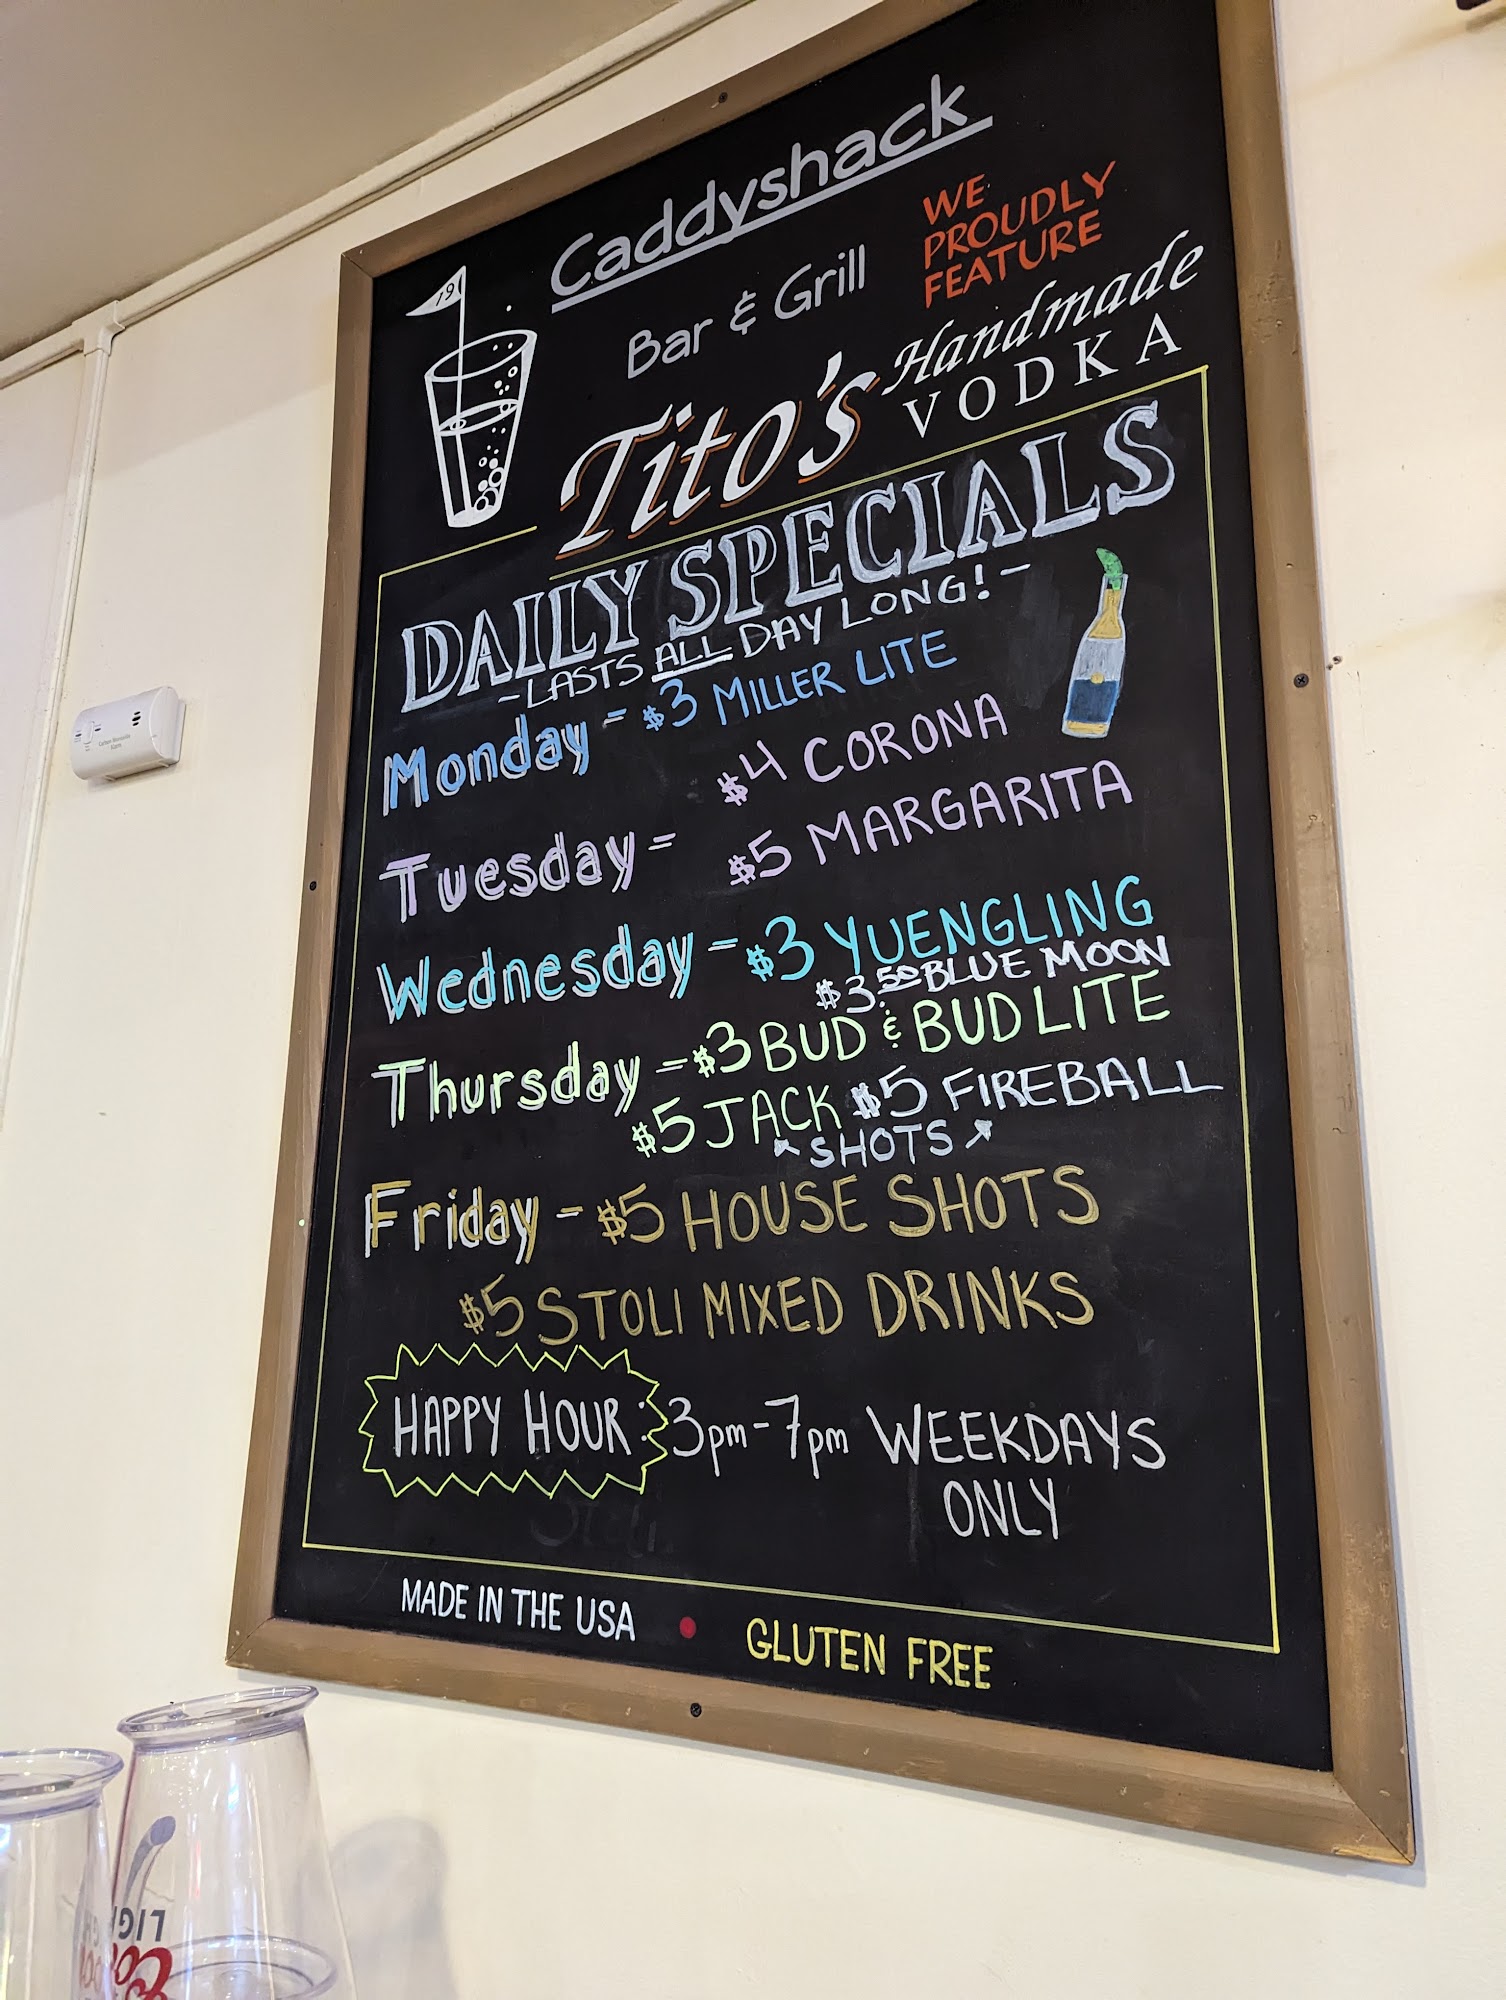 Caddyshack
Bar & Grill
19
WE
PROUDLY
FEATURE
Tito's Handmade
VODKA
DAILY SPECIALS
~LASTS ALL DAY LONG!~
Monday = $3 MILLER LITE
Tuesday = $4 CORONA
$5 MARGARITA
Wednesday - $3 YUENGLING
$3.50 BLUE MOON
Thursday - $3 BUD & BUD LITE
$5 JACK $5 FIREBALL
↖ SHOTS ↗
Friday - $5 HOUSE SHOTS
$5 STOLI MIXED DRINKS
HAPPY HOUR: 3pm-7pm WEEKDAYS
ONLY
MADE IN THE USA • GLUTEN FREE
Carbon Monoxide
Alarm